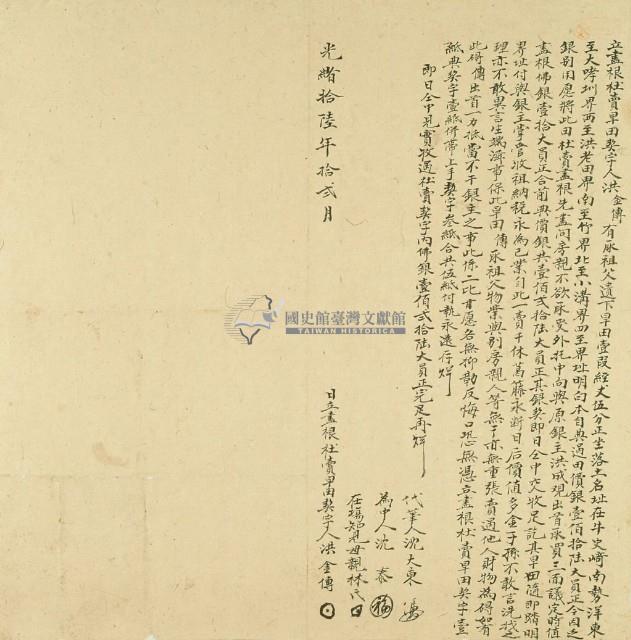 立盡根杜賣旱田契字人洪金傳有承祖父遺下旱田壹段經丈伍分正坐落土名址在牛史崎南勢洋東
至大哮圳界西至洪老田界南至竹界北至小溝界四至界址明白本自典過田價銀壹佰拾陸大員正今因乏
銀別用愿將此田杜賣盡根先盡問房親不欲承受外托中向與原銀主洪成觀出首承買三面議定時值
盡根佛銀壹拾大員正合前典價銀共壹佰貳拾陸大員正其銀契即日仝中交收足訖其旱田隨即踏明
界址付與銀主掌管收租納稅永為己業自此一賣千休葛藤永斷日后價值多金子孫不敢言洗找
理亦不敢異言生端滋事保此旱田傳承祖父物業與別房親人等無干亦無重張賣過他人財物為碍如有
此碍傳出首一力抵當不干銀主之事此係二比甘愿各無抑勒反悔口恐無憑立盡根杜賣旱田契字壹
紙典契字壹紙併帶上手契字叁紙合共伍紙付執永遠存炤
即日仝中見實收過杜賣契字內佛銀壹佰貳拾陸大員正完足再炤
代筆人沈大東
為中人沈泰
在場知見母親林氏
日立盡根杜賣旱田契字人洪金傳
光緒拾陸年拾貳月
國史館臺灣文獻館
TAIWAN HISTORICA